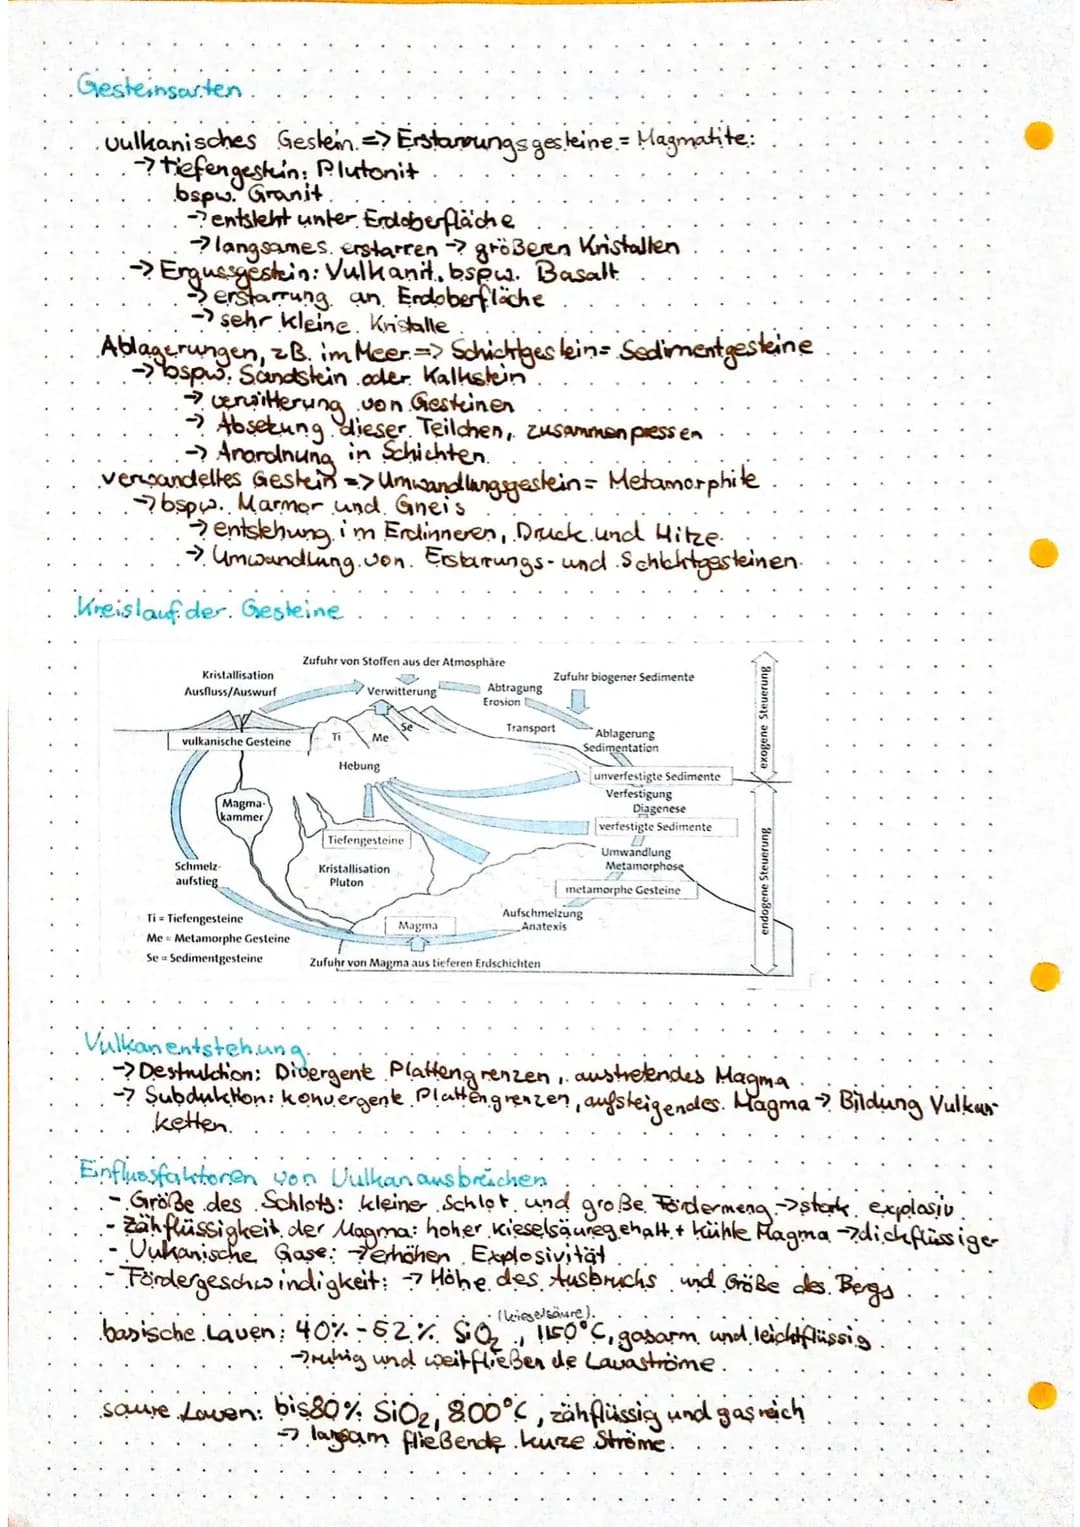 Gesteinsarten
vulkanisches Gestein => Erstarrungsgesteine = Magmatite:
-> Tiefengestein: Plutonit
bspw. Granit
-> entsteht unter Erdoberfläche
-> langsames erstarren -> größeren Kristallen
-> Ergussgestein: Vulkanit, bspw. Basalt
-> erstarrung an Erdoberfläche
-> sehr kleine Kristalle
Ablagerungen, z.B. im Meer => Schichtgestein = Sedimentgesteine
-> bspw. Sandstein oder Kalkstein
-> verwitterung von Gesteinen
-> Absetzung dieser Teilchen, zusammenpressen
-> Anordnung in Schichten
verwandeltes Gestein => Umwandlungsgestein = Metamorphite
-> bspw. Marmor und Gneis
-> entstehung im Erdinneren, Druck und Hitze
-> Umwandlung von Erstarrungs- und Schichtgesteinen
Kreislauf der Gesteine
Zufuhr von Stoffen aus der Atmosphäre
Kristallisation
Ausfluss/Auswurf
Verwitterung
Abtragung
Erosion
Zufuhr biogener Sedimente
exogene Steuerung
vulkanische Gesteine
Ti
Me
Se
Transport
Ablagerung
Sedimentation
Hebung
unverfestigte Sedimente
Verfestigung
Diagenese
verfestigte Sedimente
Magma-
kammer
Tiefengesteine
Umwandlung
Metamorphose
Kristallisation
Pluton
Schmelz-
aufstieg
metamorphe Gesteine
endogene Steuerung
Aufschmelzung
Anatexis
Magma
Ti = Tiefengesteine
Me = Metamorphe Gesteine
Se = Sedimentgesteine
Zufuhr von Magma aus tieferen Erdschichten
Vulkanentstehung
-> Destruktion: Divergente Plattengrenzen, austretendes Magma
-> Subduktion: konvergente Plattengrenzen, aufsteigendes Magma -> Bildung Vulkan-
ketten
Einflussfaktoren von Vulkanausbrüchen
- Größe des Schlots: kleiner Schlot und große Fördermeng -> stark explosiv
- Zähflüssigkeit der Magma: hoher Kieselsäuregehalt + kühle Magma -> dickflüssiger
- Vulkanische Gase: -> erhöhen Explosivität
- Fördergeschwindigkeit: -> Höhe des Ausbruchs und Größe des Bergs
(kieselsäure)
basische Laven: 40% - 52% SiO₂, 1150°C, gasarm und leichtflüssig
-> ruhig und weitfließende Lavaströme
saure Laven: bis 80% SiO₂, 800°C, zähflüssig und gasreich
-> langsam fließende kurze Ströme